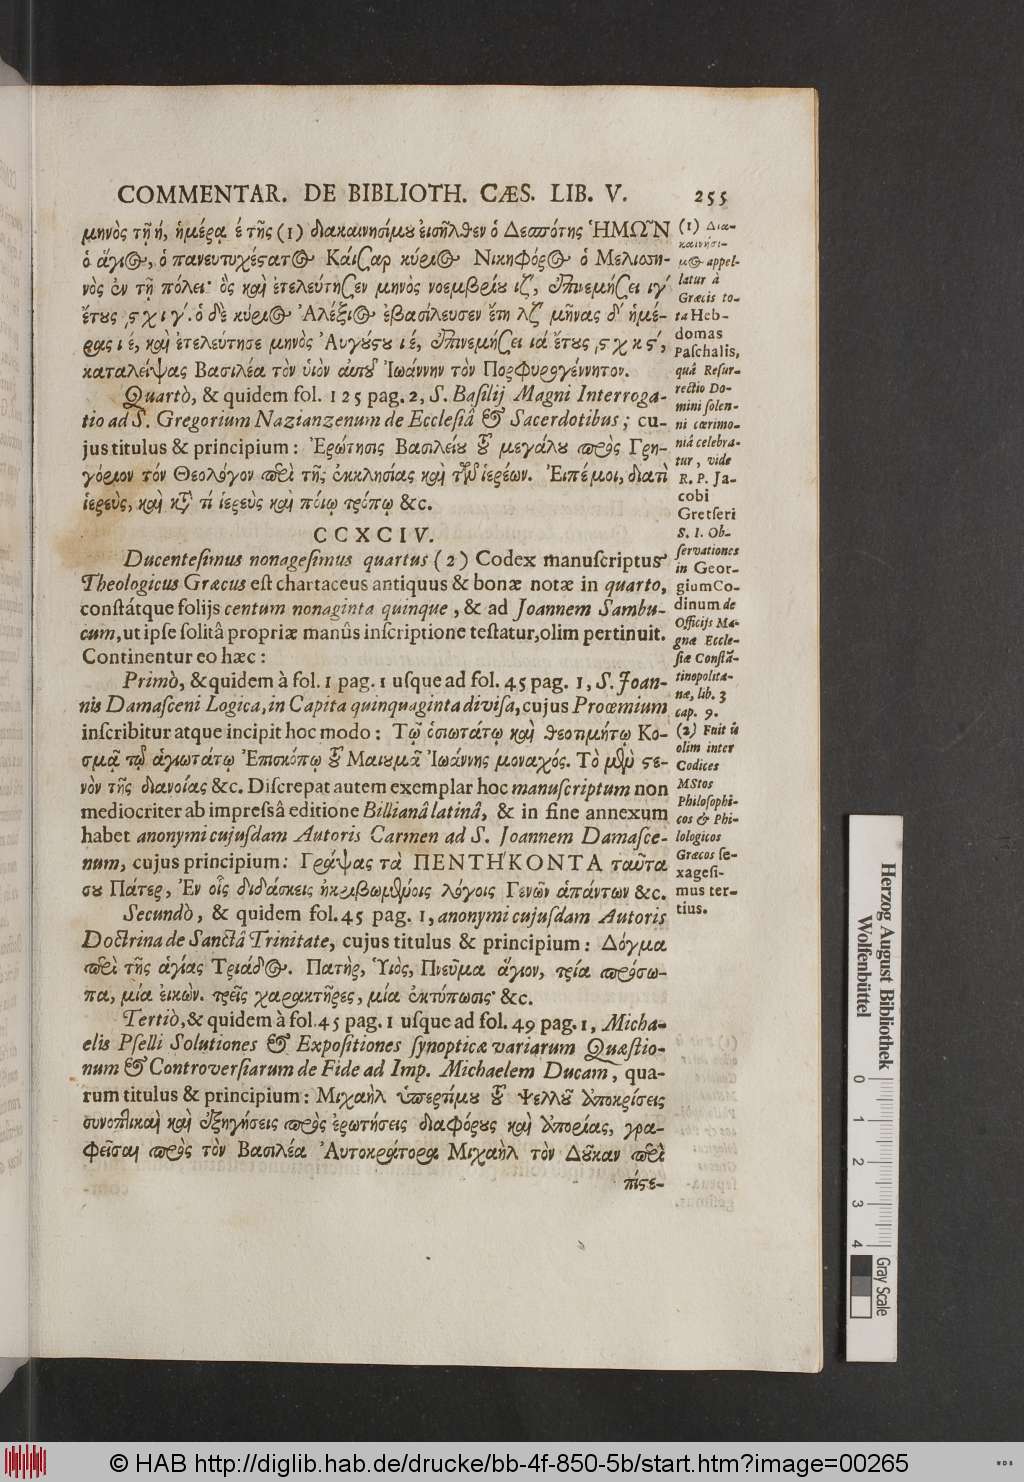 COMMENTAR. DE BIBLIOTH. CÆS. LIB. V. 255
μηνὸς τῇ ή, ἡμέρᾳ έ τῆς (1) διακαινησίμου εἰσῆλθεν ὁ Δεσπότης ἩΜΩ͂Ν
ὁ ἅγιος, ὁ πανευτυχέστατος Καίσαρ κύριος Νικηφόρος ὁ Μελισση-
νὸς ἐν τῇ πόλει· ὃς καὶ ἐτελεύτησεν μηνὸς νοεμβρίου ιζ΄, ἐπινεμήσει ιγ΄
ἔτους ϛχιγ. ὁ δὲ κύριος Ἀλέξιος ἐβασίλευσεν ἔτη λζ΄ μῆνας δ΄ ἡμέ-
ρας ιέ, καὶ ἐτελεύτησε μηνὸς Αὐγούστου ιέ, ἐπινεμήσει ιά ἔτους ϛχκϛ΄,
καταλείψας Βασιλέα τὸν ὑιὸν αὐτοῦ Ἰωάννην τὸν Πορφυρογέννητον.
Quartò, & quidem fol. 125 pag. 2, S. Baſilij Magni Interroga-
tio ad S. Gregorium Nazianzenum de Eccleſiâ & Sacerdotibus; cu-
jus titulus & principium: Ἐρώτησις Βασιλείου τοῦ μεγάλου πρὸς Γρη-
γόριον τόν Θεολόγον περὶ τῆς ἐκκλησίας καὶ τῶν ἱερέων. Ἐιπέ μοι, διατὶ
ἱερεὺς, καὶ κατὰ τί ἱερεὺς καὶ ποίῳ τρόπῳ &c.
CCXCIV.
Ducenteſimus nonageſimus quartus (2) Codex manuſcriptus
Theologicus Græcus eſt chartaceus antiquus & bonæ notæ in quarto,
conſtátque folijs centum nonaginta quinque, & ad Joannem Sambu-
cum, ut ipſe ſolitâ propriæ manûs inſcriptione teſtatur, olim pertinuit.
Continentur eo hæc:
Primò, & quidem à fol. 1 pag. 1 uſque ad fol. 45 pag. 1, S. Joan-
nis Damaſceni Logica, in Capita quinquaginta diviſa, cujus Proœmium
inſcribitur atque incipit hoc modo: Τῷ ὁσιωτάτῳ καὶ θεοτιμήτῳ Κο-
σμᾷ τῷ ἁγιωτάτῳ Ἐπισκόπῳ τοῦ Μαιουμᾶ Ἰωάννης μοναχός. Τὸ μὲν στε-
νὸν τῆς διανοίας &c. Diſcrepat autem exemplar hoc manuſcriptum non
mediocriter ab impreſsâ editione Billianâ latinâ, & in fine annexum
habet anonymi cujuſdam Autoris Carmen ad S. Joannem Damaſce-
num, cujus principium: Γράψας τὰ ΠΕΝΤΗΚΟΝΤΑ ταῦτα
σου Πάτερ, Ἐν οἷς διδάσκεις ἠκριβωμένοις λόγοις Γενῶν ἁπάντων &c.
Secundò, & quidem fol. 45 pag. 1, anonymi cujuſdam Autoris
Doctrina de Sanctâ Trinitate, cujus titulus & principium: Δόγμα
περὶ τῆς ἁγίας Τριάδος. Πατὴρ, Ὑιὸς, Πνεῦμα ἅγιον, τρία πρόσω-
πα, μία εἰκὼν. τρεῖς χαρακτῆρες, μία ἐκτύπωσις &c.
Tertiò, & quidem à fol. 45 pag. 1 uſque ad fol. 49 pag. 1, Micha-
elis Pſelli Solutiones & Expoſitiones ſynopticæ variarum Quæſtio-
num & Controverſiarum de Fide ad Imp. Michaelem Ducam, qua-
rum titulus & principium: Μιχαὴλ ὑπερτίμου τοῦ Ψελλοῦ ἀποκρίσεις
συνοπτικαὶ καὶ ἐξηγήσεις πρὸς ἐρωτήσεις διαφόρους καὶ ἀπορίας, γρα-
φεῖσαι πρὸς τὸν Βασιλέα Ἀυτοκράτορα Μιχαὴλ τὸν Δοῦκαν περὶ
πίστε-
(1) Δια-
καινήσι-
μος appel-
latur à
Græcis to-
ta Heb-
domas
Paſchalis,
quâ Reſur-
rectio Do-
mini ſolen-
ni cærimo-
niâ celebra-
tur, vide
R. P. Ja-
cobi
Gretſeri
S. I. Ob-
ſervationes
in Geor-
gium Co-
dinum de
Officijs Ma-
gnæ Eccle-
ſiæ Conſtã-
tinopolita-
næ, lib. 3
cap. 9.
(2) Fuit is
olim inter
Codices
MStos
Philoſophi-
cos & Phi-
lologicos
Græcos ſe-
xageſi-
mus ter-
tius.
Herzog August Bibliothek
Wolfenbüttel
0 1 2 3 4
Gray Scale
© HAB http://diglib.hab.de/drucke/bb-4f-850-5b/start.htm?image=00265